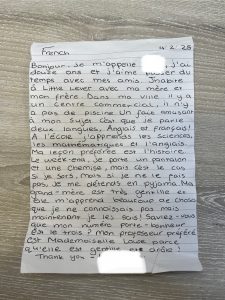 French 4.2.25
Bonjour, je m'appelle j'ai
douze ans et j'aime passer du
temps avec mes amis. J'habite
à Little Lever avec ma mère et
mon frère. Dans ma ville il y a
un centre commercial, il n'y
a pas de piscine. Un fait amusant
à mon sujet c'est que je parle
deux langues, Anglais et Français!
A l'école j'apprends les sciences,
les mathématiques et l'anglais.
Ma leçon préférée est l'histoire.
Le week-end, je porte un pantalon
et une chemise, mais c'est le cas
si je sors, mais si je ne le fais
pas, je me détends en pyjama. Ma
grand-mère est très gentille et
elle m'apprend beaucoup de choses
que je ne connaissais pas mais
maintenant je les sais! Saviez-vous
que mon numéro porte-bonheur
est le trois? Mon professeur préféré
est Mademoiselle Lowe parce
qu'elle est gentille et drôle!
Thank you